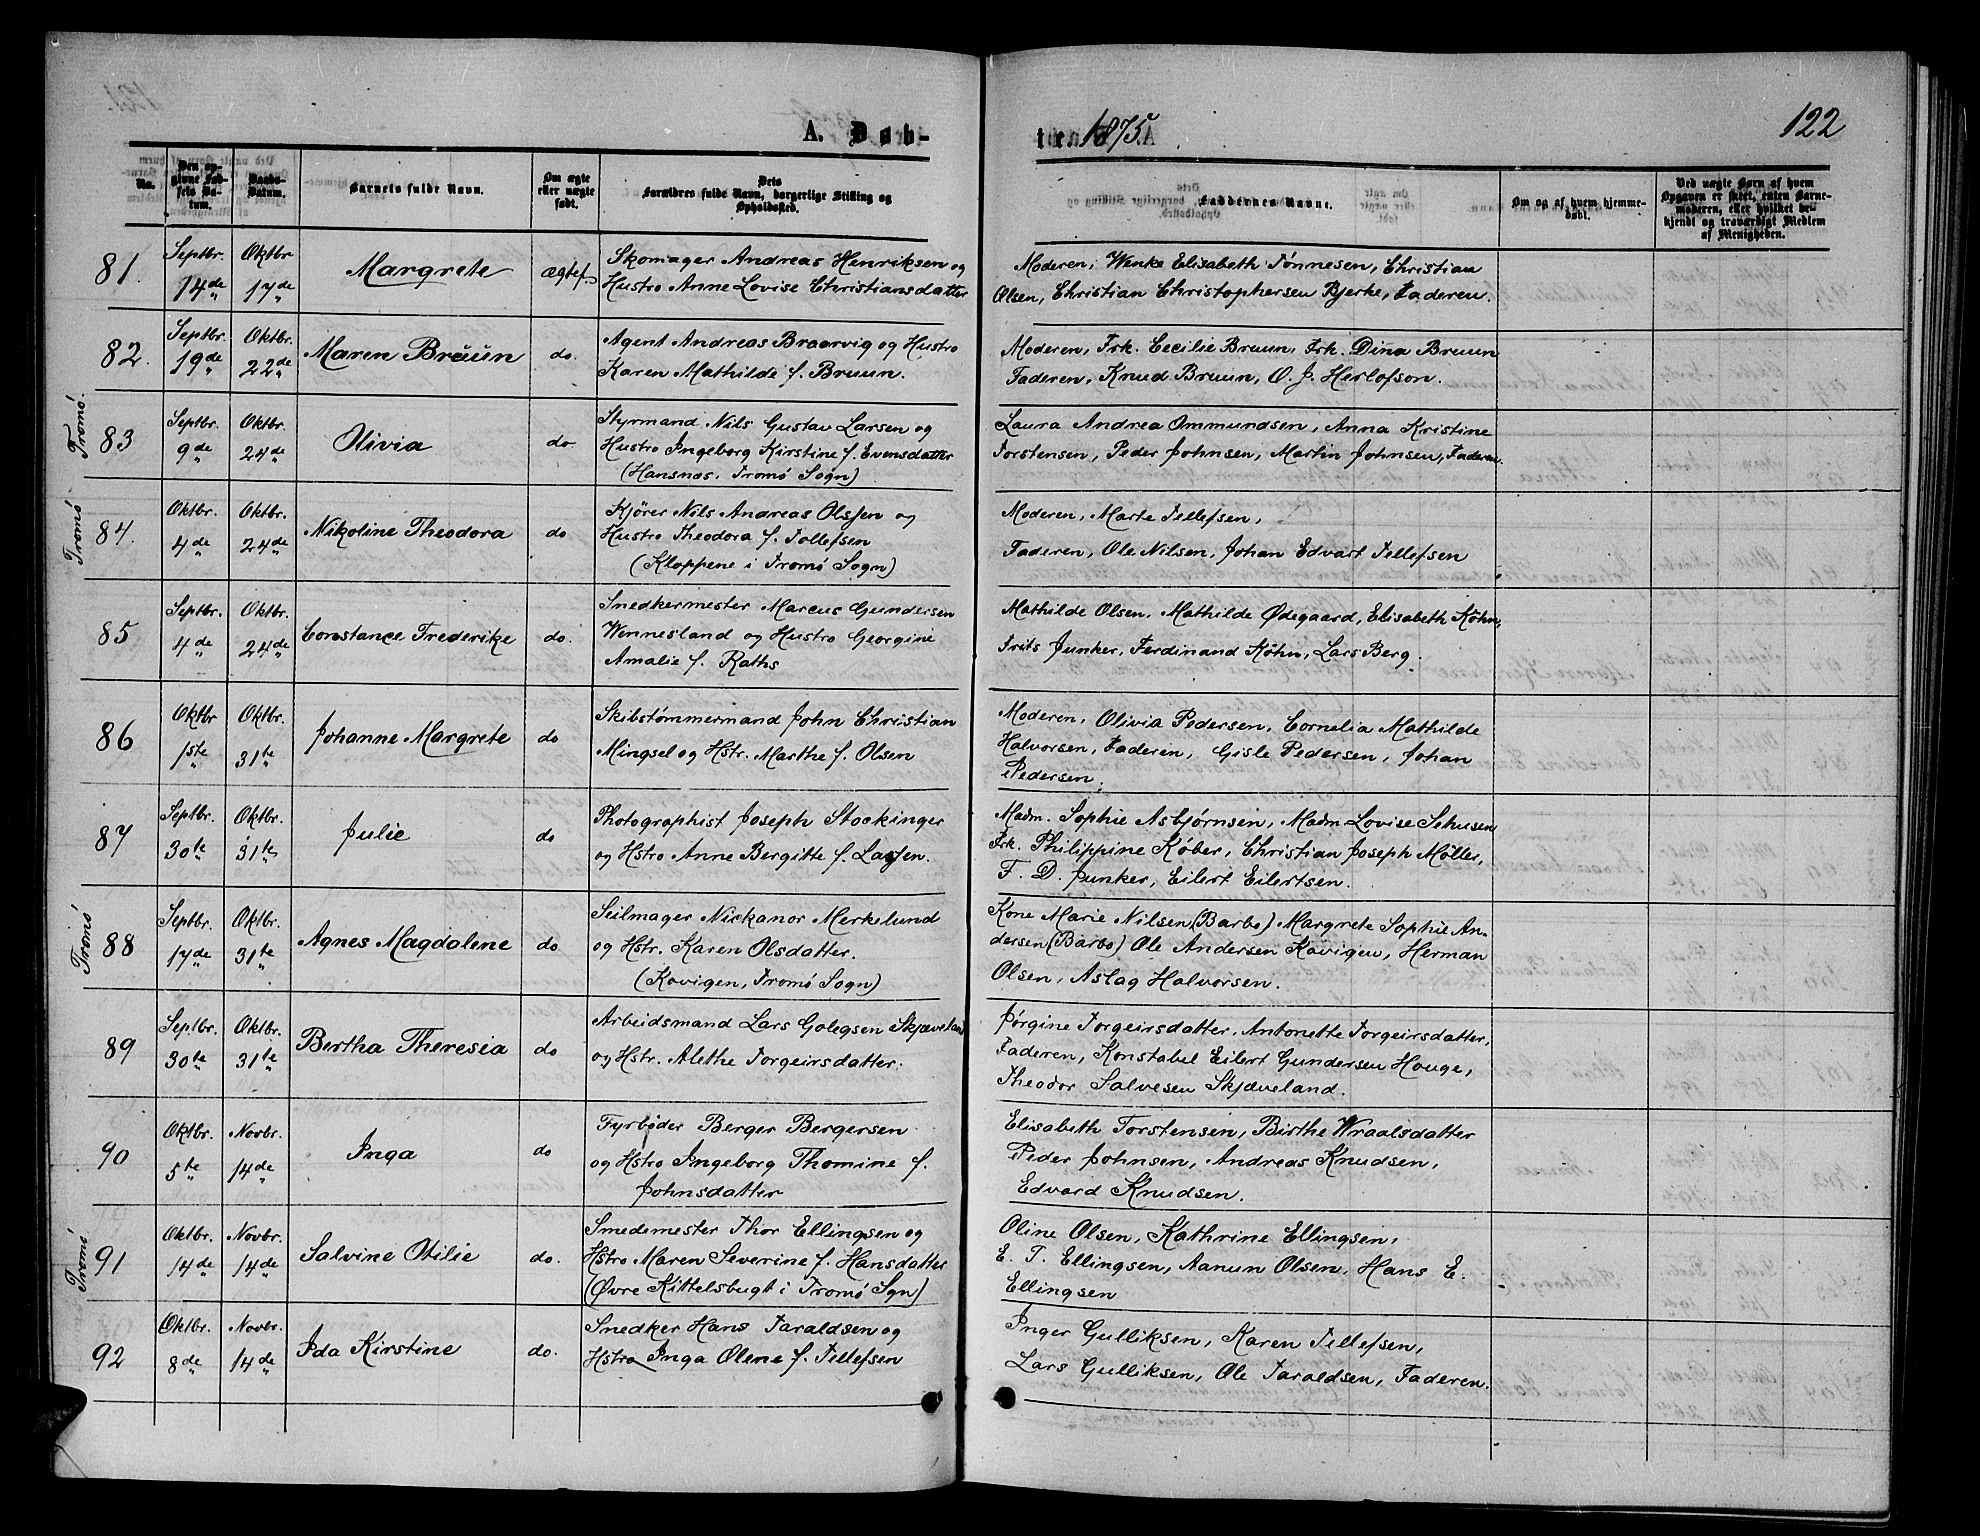 A. Døb-
te 1875.
122
No.
Den opgivne Fødsels Datum.
Daabs-Datum.
Barnets fulde Navn.
Om ægte eller uægte født.
Dets Forældres fulde Navn, borgerlige Stilling og Opholdssted.
Faddernes Navne.
Om og af hvem hjemmedøbt.
Ved uægte Børn af hvem Opgaven er skeet, enten Barnemoderen, eller hvilket bekjendt og troværdigt Medlem af Menigheden.
81. Septbr. 14de Oktbr 17de Margrete ægtef.
Skomager Andreas Henriksen og
Hustro Anne Lovise Christiansdatter
Moderen, Wenke Elisabeth Tønnesen, Christian
Olsen, Christian Christophersen Bjerke, Faderen.
82. Septbr. 19de Oktbr. 22de Maren Bruun do.
Agent Andreas Braarvig og Hustro
Karen Mathilde f. Bruun.
Moderen, Frk. Cecilie Bruun, Frk. Dina Bruun
Faderen, Knud Bruun, O. J. Herlofson.
Tromø.
83 Septbr. 9de Oktbr. 24de Olivia do
Styrmand Nils Gustav Larsen og
Hustro Ingeborg Kirstine f. Evensdatter
(Hansnæs, Tromø Sogn)
Laura Andrea Ommundsen, Anna Kristine
Torstensen, Peder Johnsen, Martin Johnsen, Faderen.
Tromø
84. Oktbr. 4de Oktbr. 24de Nikoline Theodora do
Kjører Nils Andreas Olsen og
Hustro Theodora f. Tollefsen
(Kloppene i Tromø Sogn)
Moderen, Marte Tellefsen,
Faderen, Ole Nilsen, Johan Edvart Tellefsen
85 Septbr. 4de Oktbr. 24de Constance Frederike do.
Snedkermester Marcus Gundersen
Wennesland og Hustro Georgine
Amalie f. Raths
Mathilde Olsen, Mathilde Ødegaard, Elisabeth Köhn,
Frits Junker, Ferdinand Köhn, Lars Berg.
86 Oktbr 1ste Oktbr. 31te Johanne Margrete do
Skibstømmermand John Christian
Mingsel og Hstr. Marthe f. Olsen
Moderen, Olivia Pedersen, Cornelia Mathilde
Halvorsen, Faderen, Gisle Pedersen, Johan
Pedersen.
87 Septbr. 30te Oktbr. 31te Julie do
Photographist Joseph Stockinger
og Hstro Anne Bergitte f. Lassen.
Madm. Sophie Asbjørnsen, Madm Lovise Schusen
Frk. Philippine Køber, Christian Joseph Møller,
F. D. Junker, Eilert Eilertsen.
Tromø
88 Septbr. 17de Oktbr. 31te Agnes Magdalene do
Seilmager Nickanor Merkelund
og Hstr. Karen Olsdatter.
(Kavigen, Tromø Sogn)
Kone Marie Nilsen (Barbo) Margrete Sophie An-
dersen (Barbo) Ole Andersen Kavigen, Herman
Olsen, Aslag Halvorsen.
89 Septbr. 30te Oktbr. 31te Bertha Theresia do
Arbeidsmand Lars Golegsen Skjæveland
og Hstr. Alethe Torgeirsdatter.
Jørgine Torgeirsdatter, Antonette Torgeirsdatter,
Faderen, Konstabel Eilert Gundersen Houge,
Theodor Salvesen Skjæveland.
90 Oktbr. 5te Novbr. 14de Inga do
Fyrbøder Berger Bergersen
og Hstro Ingeborg Thomine f.
Johnsdatter
Elisabeth Torstensen, Birthe Wraalsdatter
Peder Johnsen, Andreas Knudsen,
Edvard Knudsen.
Tromø
91 Oktbr. 14de Novbr. 14de Salvine Otilie do.
Smedemester Thor Ellingsen og
Hstro Maren Severine f. Hansdatter
(Øvre Kittelsbugt i Tromø Sgn)
Oline Olsen, Kathrine Ellingsen,
E. T. Ellingsen, Aanun Olsen, Hans E.
Ellingsen
92 Oktbr. 8de Novbr. 14de Ida Kirstine do.
Snedker Hans Taraldsen og
Hstro Inga Olene f. Tellefsen
Inger Gulliksen, Karen Tellefsen,
Lars Gulliksen, Ole Taraldsen, Faderen.